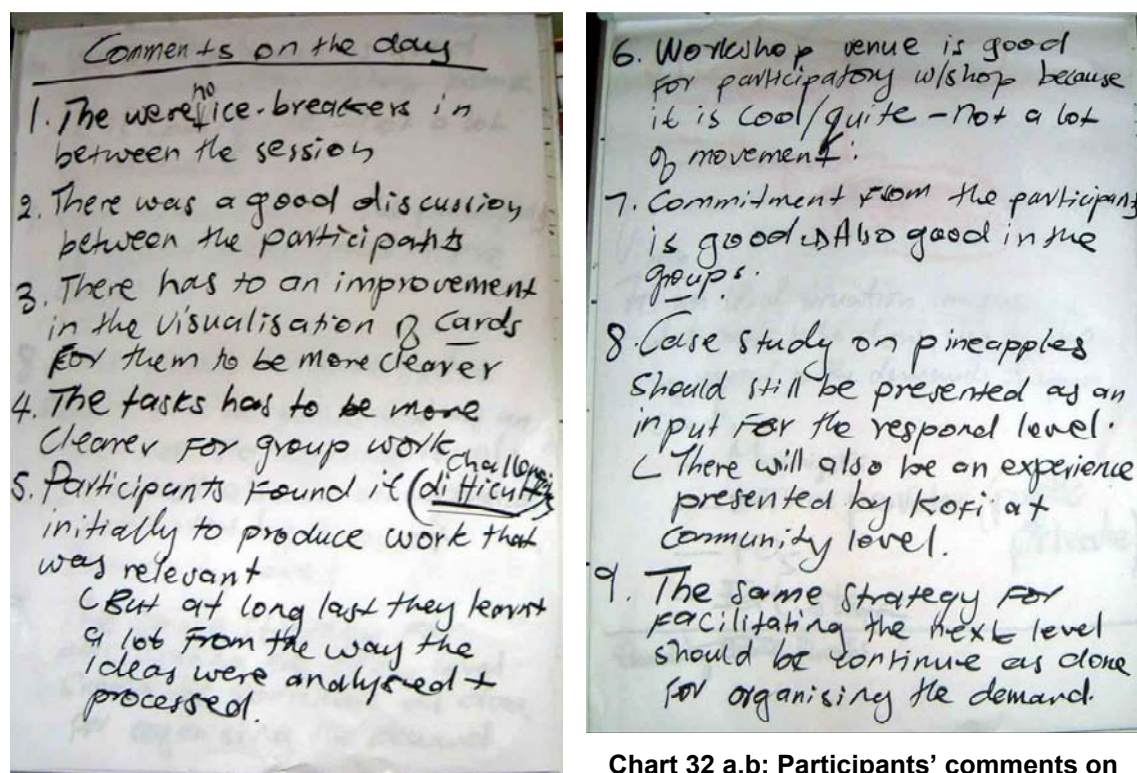 Comments on the day
1. The were no ice-breakers in
between the session
2. There was a good discussion
between the participants
3. There has to an improvement
in the visualisation of cards
For them to be more clearer
4. The tasks has to be more
clearer For group work
5. Participants Found it (difficult challenging)
initially to produce work that
was relevant
But at long last they learnt
a lot From the way the
ideas were analysed +
processed.
6. Workshop venue is good
For participatory w/shop because
it is cool/quite - not a lot
of movement.
7. Commitment From the participants
is good Also good in the
groups.
8. Case study on pineapples
should still be presented as an
input For the respond level.
There will also be an experience
presented by Kofi at
community level.
9. The same strategy For
Facilitating the next level
should be continue as done
for organising the demand.
Chart 32 a,b: Participants' comments on